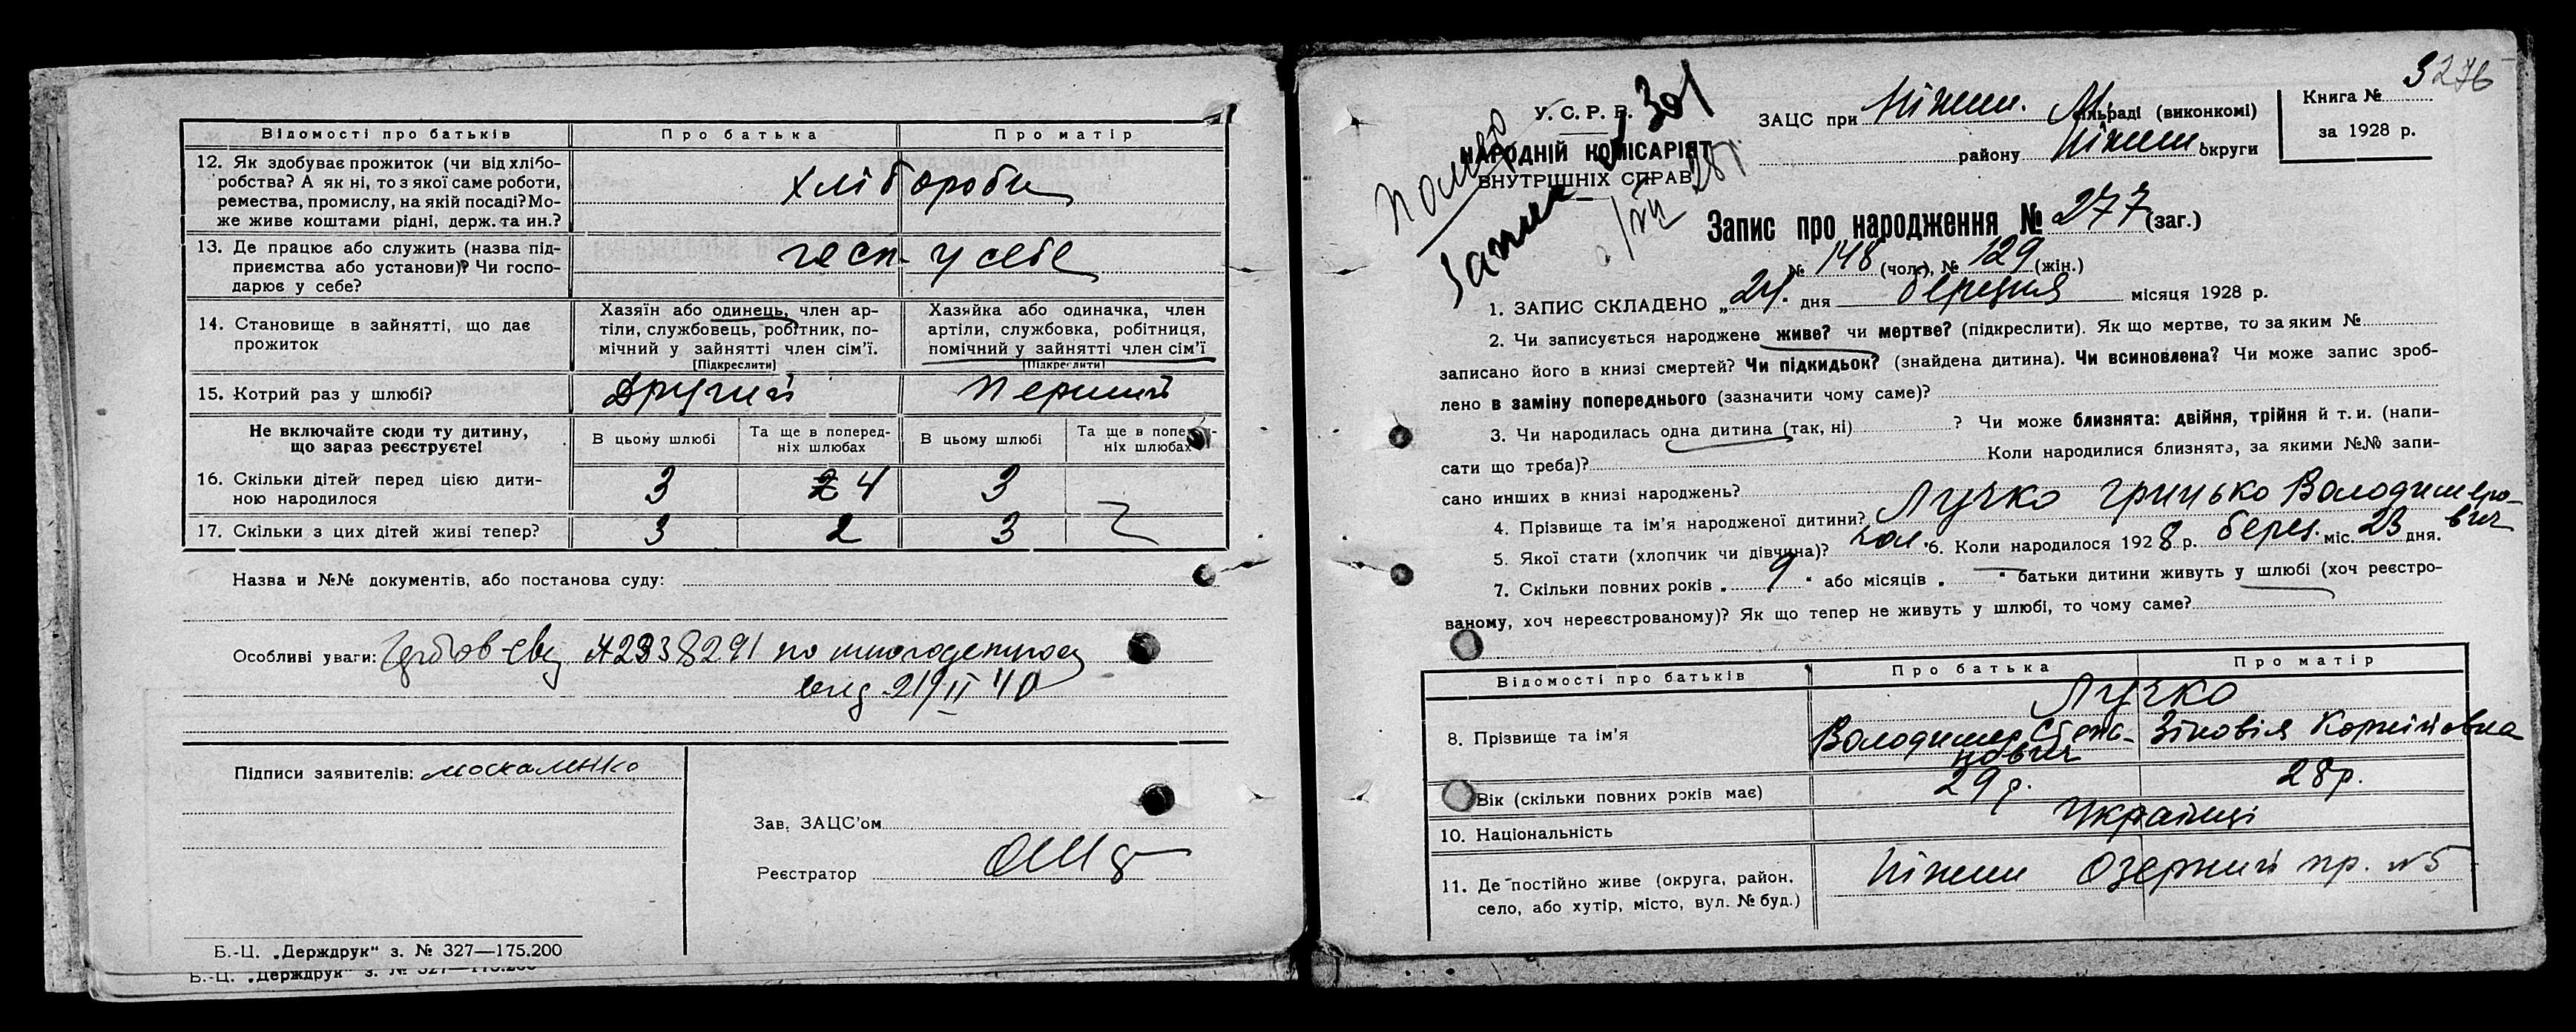 Відомості про батьків Про батька Про матір
12. Як здобуває прожиток (чи від хлібо-
робства? А як ні, то з якої саме роботи,
ремества, промислу, на якій посаді? Мо-
же живе коштами рідні, держ. та ин.?
хлібороби
13. Де працює або служить (назва під-
приємства або установи)? Чи госпо-
дарює у себе?
госп. у себе
14. Становище в зайнятті, що дає
прожиток
Хазяїн або одинець, член ар-
тіли, службовець, робітник, по-
мічний у зайнятті член сім'ї.
[Підкреслити]
Хазяйка або одиначка, член
артіли, службовка, робітниця,
помічний у зайнятті член сім'ї
[Підкреслити]
15. Котрий раз у шлюбі? Другий Перший
Не включайте сюди ту дитину,
що зараз реєструєте!
В цьому шлюбі
Та ще в поперед-
ніх шлюбах
В цьому шлюбі
Та ще в попе
ніх шлюбах
16. Скільки дітей перед цією дити-
ною народилося
3 4 3
17. Скільки з цих дітей живі тепер? 3 2 3
Назва и №№ документів, або постанова суду:
Особливі уваги:
Підписи заявителів: москаленко
Зав. ЗАЦС'ом
Реєстратор
Б.-Ц. „Держдрук" з. № 327—175.200
Б.-Ц. „Держдрук" з. № 327—175.200
3276
У. С. Р. Р.
НАРОДНІЙ КОМІСАРІЯТ
ВНУТРІШНІХ СПРАВ
301
ЗАЦС при Ніжин. раді (виконкомі)
району Ніжин. округи
Книга №
за 1928 р.
Запис про народження № 277 (заг.)
№ 148 (чол.), № 129 (жін.)
1. ЗАПИС СКЛАДЕНО „24. дня березня місяця 1928 р.
2. Чи записується народжене живе? чи мертве? (підкреслити). Як що мертве, то за яким №
записано його в книзі смертей? Чи підкидьок? (знайдена дитина). Чи всиновлена? Чи може запис зроб-
лено в заміну попереднього (зазначити чому саме)?
3. Чи народилась одна дитина (так, ні) ? Чи може близнята: двійня, трійня й т. и. (напи-
сати що треба)? Коли народилися близнята, за якими №№ запи-
сано инших в книзі народжень?
4. Прізвище та ім'я народженої дитини? Лучко Грицько Володимеро-
вич
5. Якої стати (хлопчик чи дівчина)? хол. 6. Коли народилося 1928 р. берез. міс. 23 дня.
7. Скільки повних років „ 9 " або місяців „ — " батьки дитини живуть у шлюбі (хоч реєстро-
ваному, хоч нереєстрованому)? Як що тепер не живуть у шлюбі, то чому саме?
Відомості про батьків Про батька Про матір
Лучко
8. Прізвище та ім'я Володимер Степа- Зіновія Корніївна
нович
Вік (скільки повних років має) 29 р. 28 р.
10. Національність Українці
11. Де постійно живе (округа, район,
село, або хутір, місто, вул. № буд.)
Ніжин Озерний пр. № 5